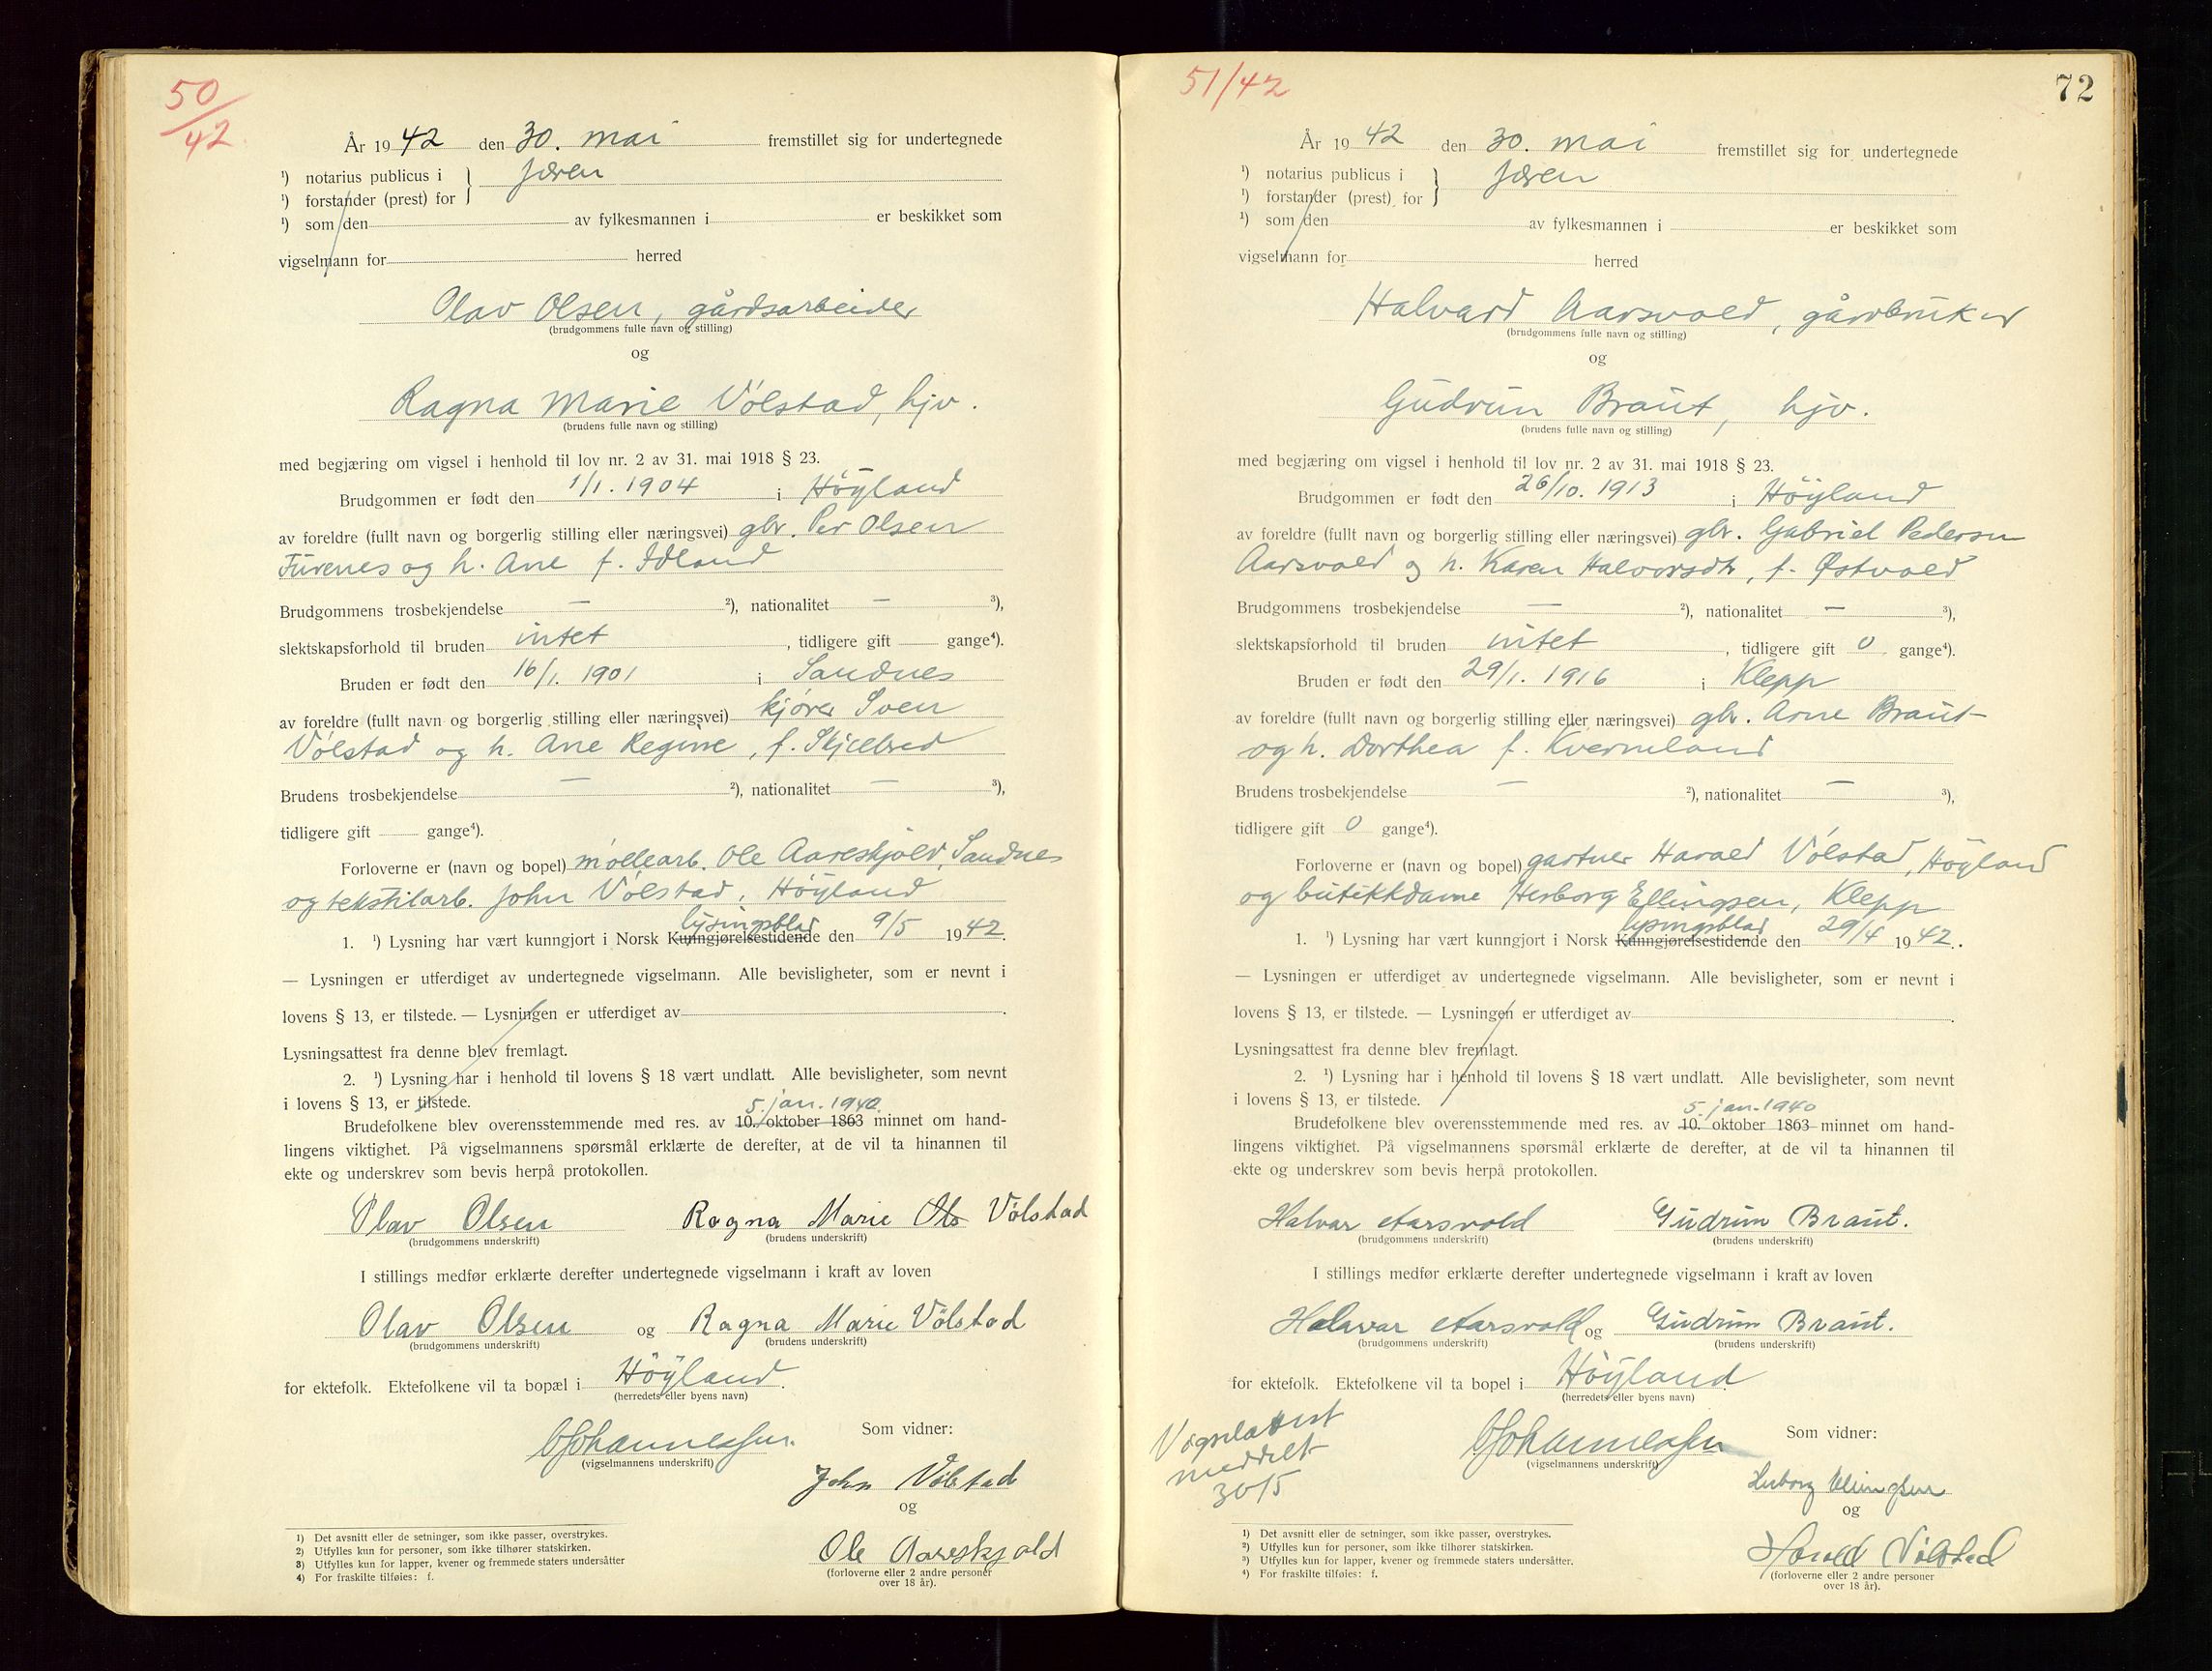 50/42
År 1942 den 30. mai fremstillet sig for undertegnede
¹) notarius publicus i } Jæren
¹) forstander (prest) for
¹) som den av fylkesmannen i er beskikket som
vigselmann for herred
Olav Olsen, gårdsarbeider
(brudgommens fulle navn og stilling)
og
Ragna Marie Vølstad, hjv.
(brudens fulle navn og stilling)
med begjæring om vigsel i henhold til lov nr. 2 av 31. mai 1918 § 23.
Brudgommen er født den 1/1. 1904 i Høyland
av foreldre (fullt navn og borgerlig stilling eller næringsvei) gbr. Per Olsen
Furenes og h. Ane f. Idland
Brudgommens trosbekjendelse — ²), nationalitet — ³),
slektskapsforhold til bruden intet, tidligere gift gange⁴).
Bruden er født den 16/1. 1901 i Sandnes
av foreldre (fullt navn og borgerlig stilling eller næringsvei) kjører Sven
Vølstad og h. Ane Regine, f. Skjelbred
Brudens trosbekjendelse — ²), nationalitet — ³),
tidligere gift gange⁴).
Forloverne er (navn og bopel) møllearb. Ole Aareskjold, Sandnes
og tekstilarb. John Vølstad, Høyland
lysingsblad
1. ¹) Lysning har vært kunngjort i Norsk Kunngjørelsestidende den 9/5 1942.
— Lysningen er utferdiget av undertegnede vigselmann. Alle bevisligheter, som er nevnt i
lovens § 13, er tilstede. — Lysningen er utferdiget av .
Lysningsattest fra denne blev fremlagt.
2. ¹) Lysning har i henhold til lovens § 18 vært undlatt. Alle bevisligheter, som nevnt
i lovens § 13, er tilstede.
5. jan. 1940
Brudefolkene blev overensstemmende med res. av 10. oktober 1863 minnet om hand-
lingens viktighet. På vigselmannens spørsmål erklærte de derefter, at de vil ta hinannen til
ekte og underskrev som bevis herpå protokollen.
Olav Olsen Ragna Marie Ols Vølstad
(brudgommens underskrift) (brudens underskrift)
I stillings medfør erklærte derefter undertegnede vigselmann i kraft av loven
Olav Olsen og Ragna Marie Vølstad
(brudgommens underskrift) (brudens underskrift)
for ektefolk. Ektefolkene vil ta bopæl i Høyland.
(herredets eller byens navn)
Johannessen. Som vidner:
(vigselmannens underskrift)
John Vølstad
og
Ole Aareskjold
(forloverne eller 2 andre personer
over 18 år).
1) Det avsnitt eller de setninger, som ikke passer, overstrykes.
2) Utfylles kun for personer, som ikke tilhører statskirken.
3) Utfylles kun for lapper, kvener og fremmede staters undersåtter
4) For fraskilte tilføies: f.
51/42
72
År 1942 den 30. mai fremstillet sig for undertegnede
¹) notarius publicus i } Jæren
¹) forstander (prest) for
¹) som den av fylkesmannen i er beskikket som
vigselmann for herred
Halvard Aarsvold, gårdbruker
(brudgommens fulle navn og stilling)
og
Gudrun Braut, hjv.
(brudens fulle navn og stilling)
med begjæring om vigsel i henhold til lov nr. 2 av 31. mai 1918 § 23.
Brudgommen er født den 26/10. 1913 i Høyland
av foreldre (fullt navn og borgerlig stilling eller næringsvei) gbr. Gabriel Pedersen
Aarsvold og h. Karen Halvorsdtr, f. Østvold
Brudgommens trosbekjendelse — ²), nationalitet — ³),
slektskapsforhold til bruden intet, tidligere gift 0 gange⁴).
Bruden er født den 29/1. 1916 i Klepp
av foreldre (fullt navn og borgerlig stilling eller næringsvei) gbr. Arne Braut
og h. Dorthea f. Kverneland
Brudens trosbekjendelse — ²), nationalitet — ³),
tidligere gift 0 gange⁴).
Forloverne er (navn og bopel) gartner Harald Vølstad, Høyland
og butikkdame Herborg Ellingsen, Klepp
lysingsblad
1. ¹) Lysning har vært kunngjort i Norsk Kunngjørelsestidende den 29/4 1942.
— Lysningen er utferdiget av undertegnede vigselmann. Alle bevisligheter, som er nevnt i
lovens § 13, er tilstede. — Lysningen er utferdiget av .
Lysningsattest fra denne blev fremlagt.
2. ¹) Lysning har i henhold til lovens § 18 vært undlatt. Alle bevisligheter, som nevnt
i lovens § 13, er tilstede.
5. jan. 1940
Brudefolkene blev overensstemmende med res. av 10. oktober 1863 minnet om hand-
lingens viktighet. På vigselmannens spørsmål erklærte de derefter, at de vil ta hinannen til
ekte og underskrev som bevis herpå protokollen.
Halvar Aarsvold Gudrun Braut.
(brudgommens underskrift) (brudens underskrift)
I stillings medfør erklærte derefter undertegnede vigselmann i kraft av loven
Halvar Aarsvold og Gudrun Braut.
(brudgommens underskrift) (brudens underskrift)
for ektefolk. Ektefolkene vil ta bopel i Høyland
(herredets eller byens navn)
Vigselattest
meddelt
30/5
Johannessen Som vidner:
(vigselmannens underskrift)
Herborg Ellingsen
og
Harald Vølstad
(forloverne eller 2 andre personer
over 18 år).
¹) Det avsnitt eller de setninger, som ikke passer, overstrykes.
²) Utfylles kun for personer, som ikke tilhører statskirken.
³) Utfylles kun for lapper, kvener og fremmede staters undersåtter.
⁴) For fraskilte tilføies: f.